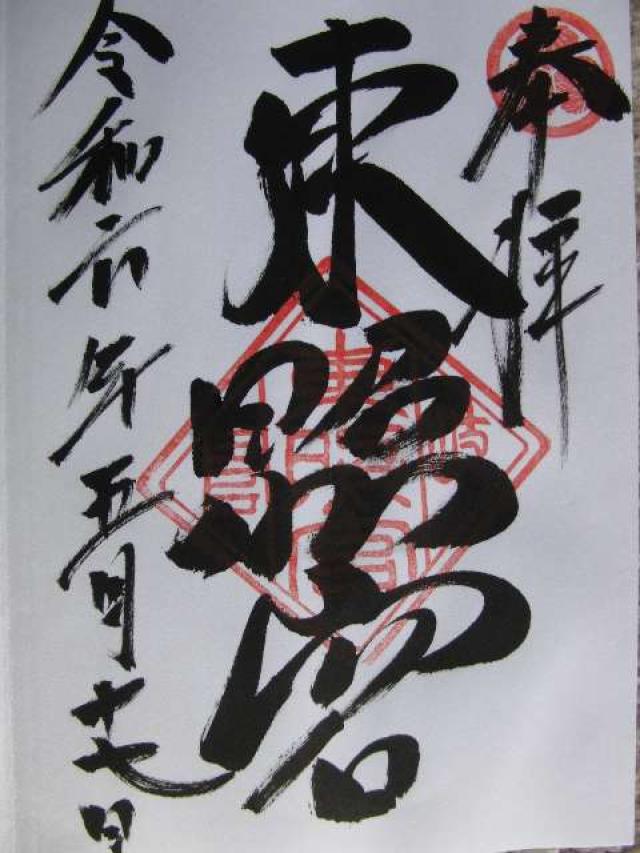 奉拝
東照宮
令和元年五月十七日